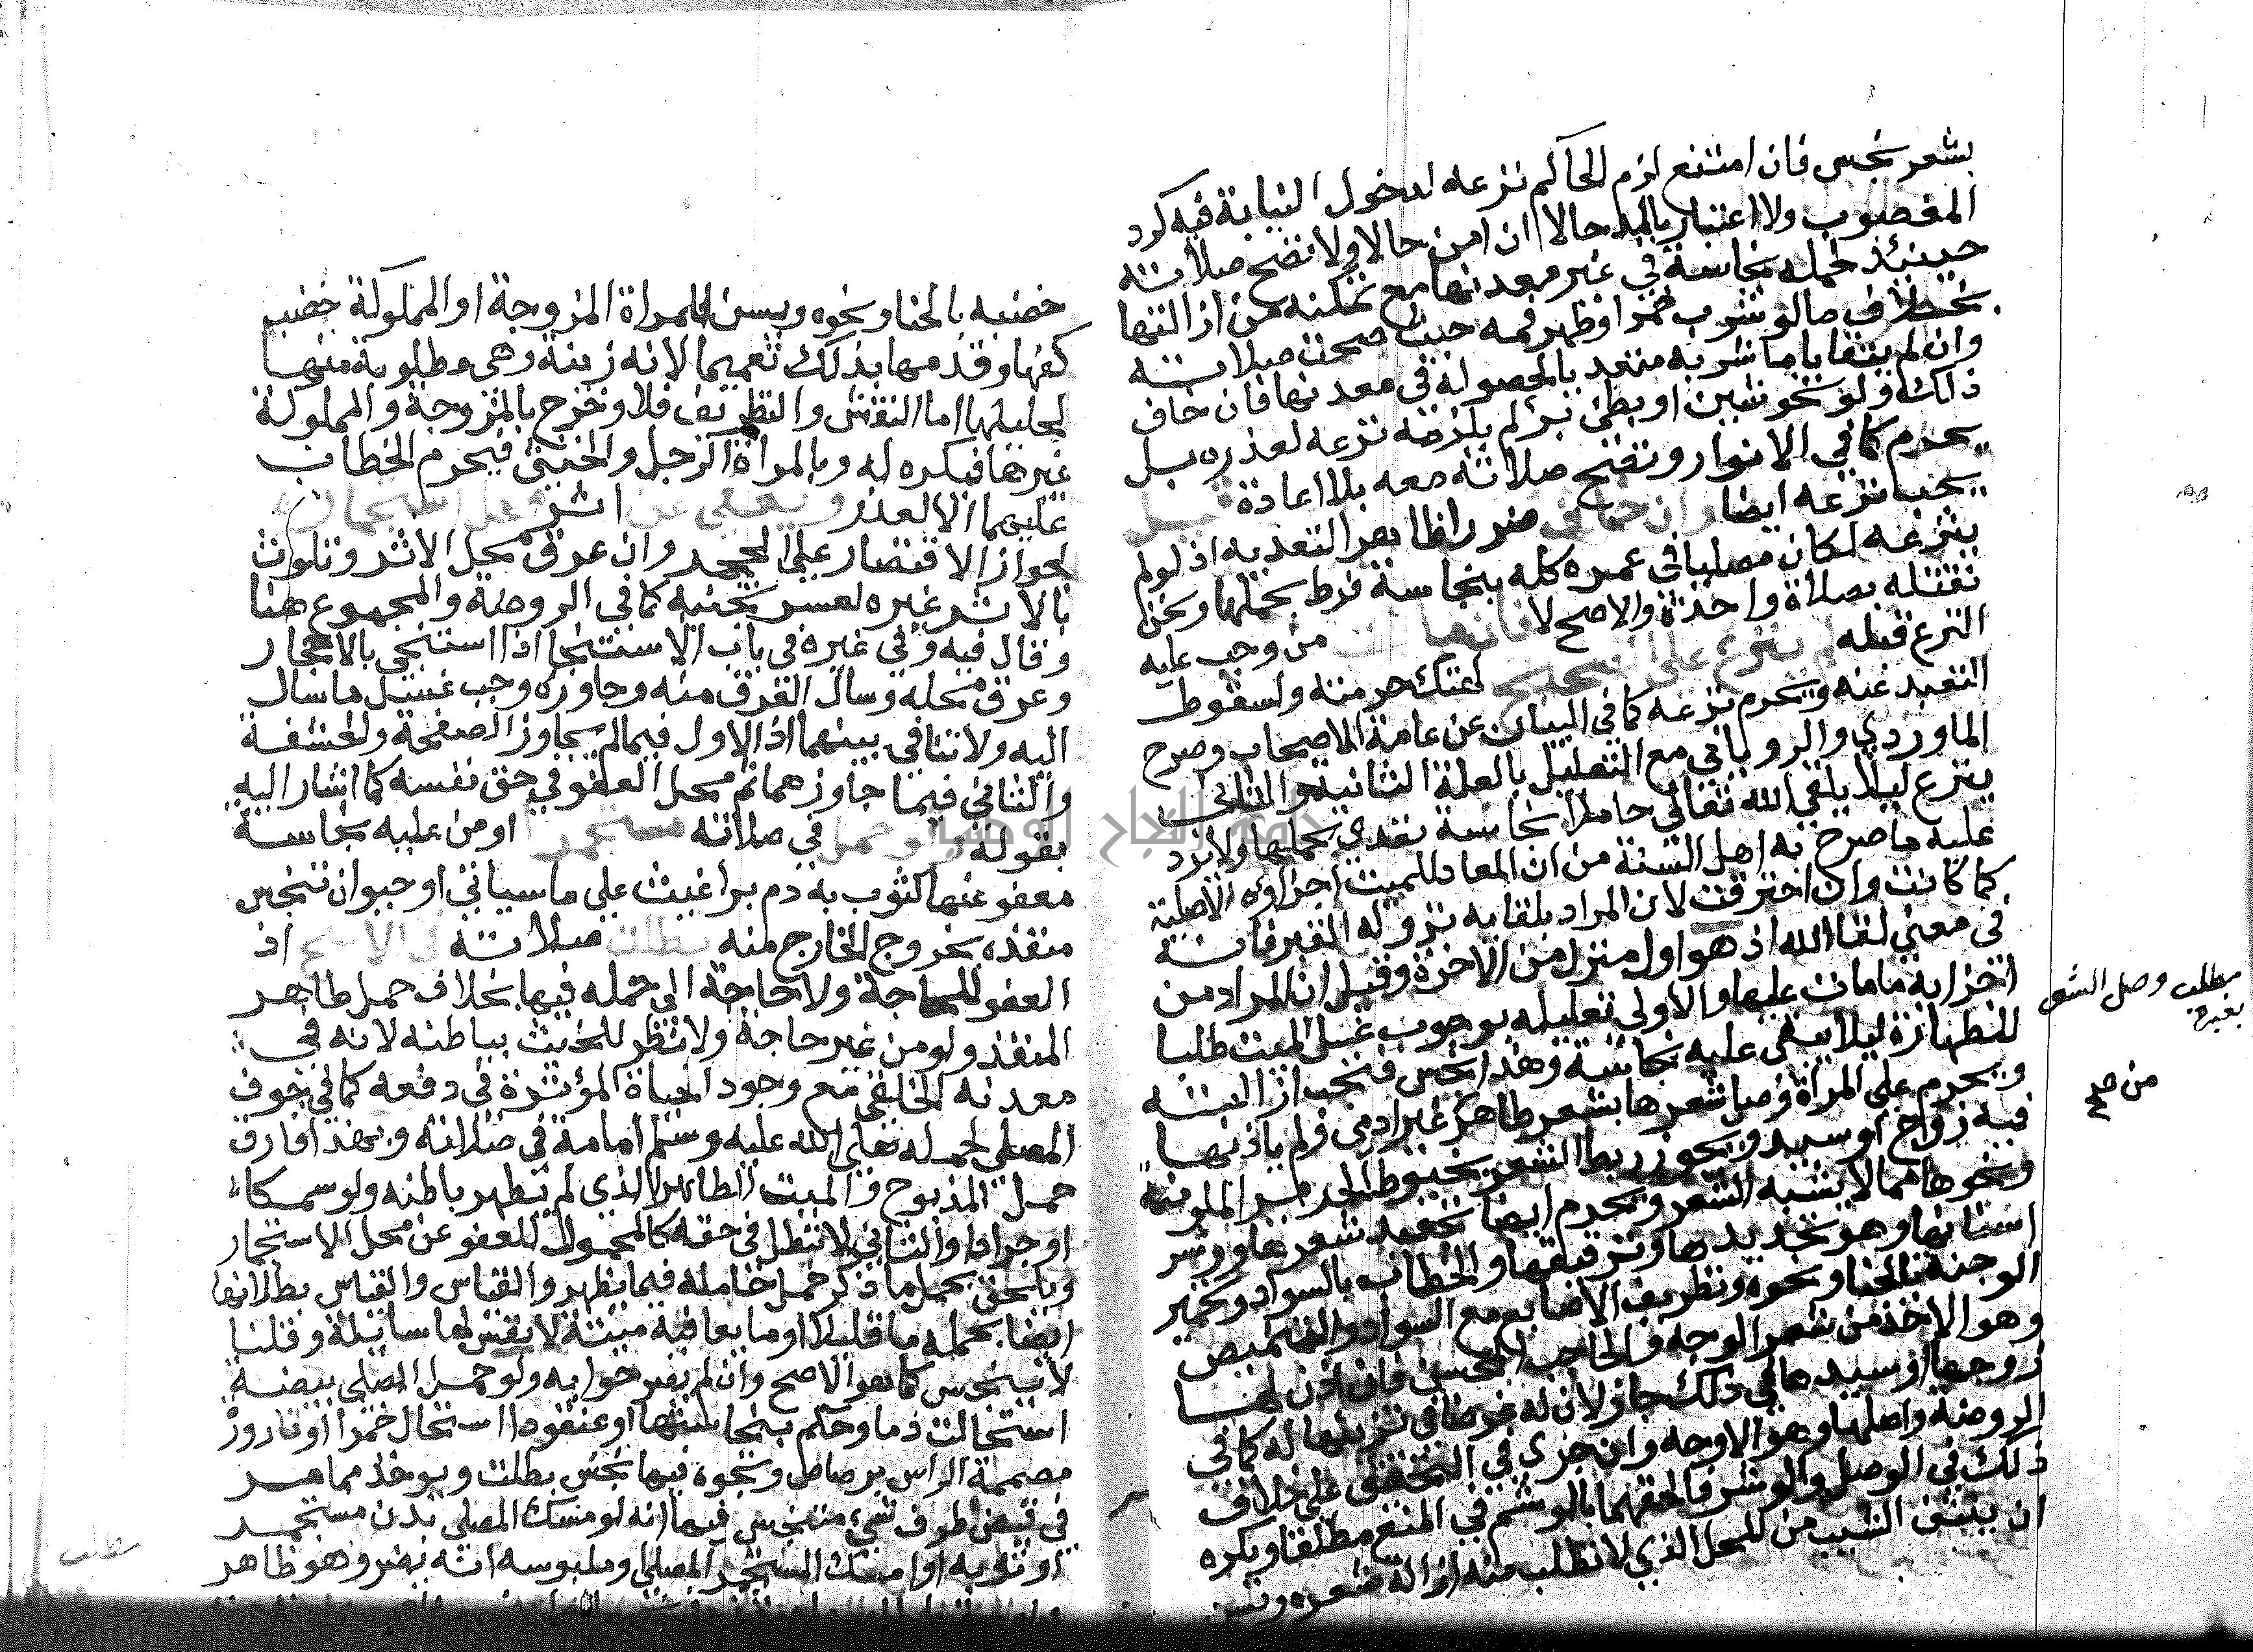 بشعر نجس فان امتنع لزم الحاكم نزعه لدخول النيابة فيه كرد
المغصوب ولا اعتبار بالمه حالا ان امن حالا ولا تصح صلاته
حينئذ لحمله نجاسة في غير معدنها مع تمكنه من ازالتها
بخلاف مالو شرب خمرا وطهر فمه حيث صحت صلاته
وان لم يتقايا ما شربه متعد بالحصوله في معدنها فان خاف
ذلك ولو نحو شين او بطئ برئ لم يلزمه نزعه لعذره بل
يحرم كما في الانوار وتصح صلاته معه بلا اعادة
يجب نزعه ايضا وان خاف ضررا ظاهر التعديه اذ لو لم
ينزعه لكان مصليا في عمره كله بنجاسة فرط بحملها ونحن
نقتله بصلاة واحدة والاصح لا فان مات من وجب عليه
النزع قبله لم ينزع على الصحيح لهتك حرمته ولسقوط
التعبد عنه ويحرم نزعه كما في البيان عن عامة الاصحاب وصرح
الماوردي والروياني مع التعليل بالعلة الثانية والثاني
ينزع ليلا يلقى الله تعالى حاملا نجاسة تعدى بحملها ولا يرد
عليه ما صرح به اهل السنة من ان المعاد للميت اجزاؤه الاصلية
كما كانت وان احترقت لان المراد بلقايه نزوله القبر فانه
في معنى لقا الله اذ هو اول منزل من الاخرة وقيل ان المراد من
اجزايه ما مات عليها والاولى تعليله بوجوب غسل الميت طلبا
للطهارة ليلا يبقى عليه نجاسة وهذا نجس فتجب ازالته
ويحرم على المراة وصل شعرها بشعر طاهر من غير ادمي ولم ياذنها
فيه زوج او سيد ويجوز ربط الشعر بخيوط الحرير الملونة
ونحوها مما لا يشبه الشعر ويحرم ايضا تجعيد شعرها ووشر
اسنانها وهو تحديدها وترقيقها والخضاب بالسواد وتحمير
الوجنة بالحنا ونحوه وتطريف الاصابع مع السواد والتنميص
وهو الاخذ من شعر الوجه والحاجب للحسن فان اذن لها
زوجها او سيدها في ذلك جاز لان له غرضا في تزينها له كما في
الروضة واصلها وهو الاوجه وان جرى في التحقيق على خلاف
ذلك في الوصل والوشر فالحقهما بالوشم في المنع مطلقا ويكره
ان ينتف الشيب من المحل الذي لا تطلب منه ازالة شعره ويسن
مطلب وصل الشعر
بغيره
من صح
خضبه بالحنا ونحوه ويسن للمراة المزوجة او المملوكة خضب
كفها وقدمها بذلك تعميما لانه زينة وهي مطلوبة منها
لحليلها اما النقش والتطريف فلا وخرج بالمزوجة والمملوكة
غيرهما فيكره له وبالمراة الرجل والخنثى فيحرم الخضاب
عليهما الا لعذر ويعفى عن اثر محل استجماره
لجواز الاقتصار على الحجر وان عرق محل الاثر وتلوث
بالاثر غيره لعسر تجنبه كما في الروضة والمجموع هنا
وقال فيه وفي غيره في باب الاستنجا اذا استنجى بالاحجار
وعرق محله وسال العرق منه وجاوزه وجب غسل ما سال
اليه ولا تنافي بينهما اذ الاول فيما لم يجاوز الصفحة والحشفة
والثاني فيما جاوزهما ثم محل العفو في حق نفسه كما اشار اليه
بقوله ولو حمل في صلاته مستجمرا او من عليه نجاسة
معفو عنها كثوب به دم براغيث على ما سياتي او حيوان تنجس
منفذه بخروج الخارج منه بطلت صلاته في الاصح اذ
العفو للحاجة ولا حاجة الى حمله فيها بخلاف حمل طاهر
المنفذ ولو من غير حاجة ولا نظر للخبث بباطنه لانه في
معدنه الخلقي مع وجود الحياة المؤثرة في دفعه كما في جوف
المصلي لحمله صلى الله عليه وسلم امامة في صلاته وبهذا فارق
حمل المذبوح والميت الطاهر الذي لم يطهر باطنه ولو سمكا
او جرادا والثاني لا تبطل في حقه كالمحمول للعفو عن محل الاستجمار
ويلحق بحمل ما ذكر حمل حامله فيما يظهر والقياس والقياس بطلانها
ايضا بحمله ما قليلا او مايعا فيه ميتة لا نفس لها سائلة وقلنا
لا ينجس كما هو الاصح وان لم يصرحوا به ولو حمل المصلي بيضة
استحالت دما وحكم بنجاستها او عنقودا استحال خمرا او قارورة
مصممة الراس برصاص ونحوه فيها نجس بطلت ويوخذ مما مر
في قبض طرف شيء متنجس فيها انه لو مسك المصلي بدن مستجمر
او ثوبه او امسك المستجمر المصلي او ملبوسه انه يضر وهو ظاهر
مطلب
جامعة النجاح الوطنية